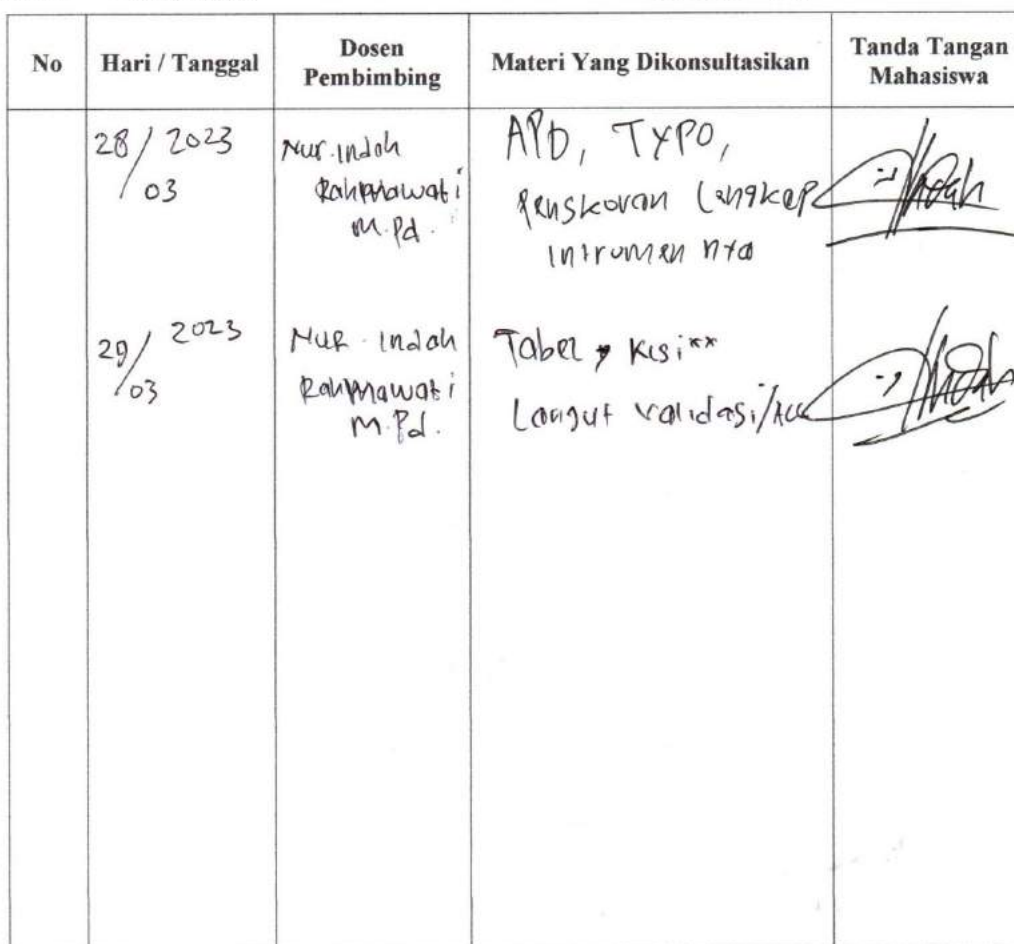 No
Hari / Tanggal
Dosen
Pembimbing
Materi Yang Dikonsultasikan
Tanda Tangan
Mahasiswa
28/03 2023
Nur Indah
Rahmawati
M.Pd.
APD, TYPO,
Penskoran Lengkap
Intrumen nya
29/03 2023
Nur Indah
Rahmawati
M.Pd.
Tabel, Kisi**
Langut validasi/Acc